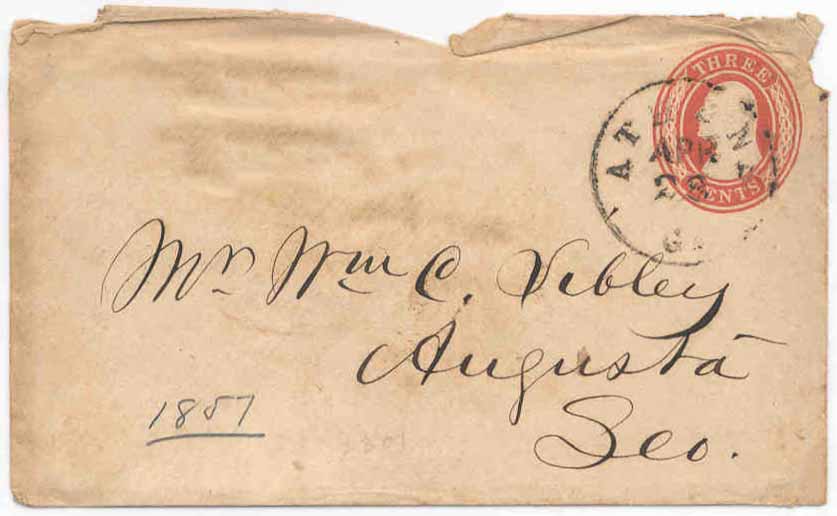 THREE
CENTS
ATHENS
APR
GA
Mr Wm C. Sibley
Augusta
Geo.
1857